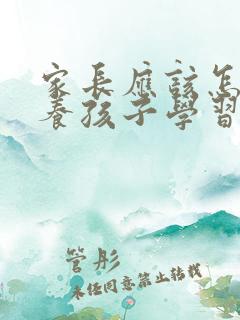 家長應該怎
養孩子學習
管彤
未經同意禁止轉載